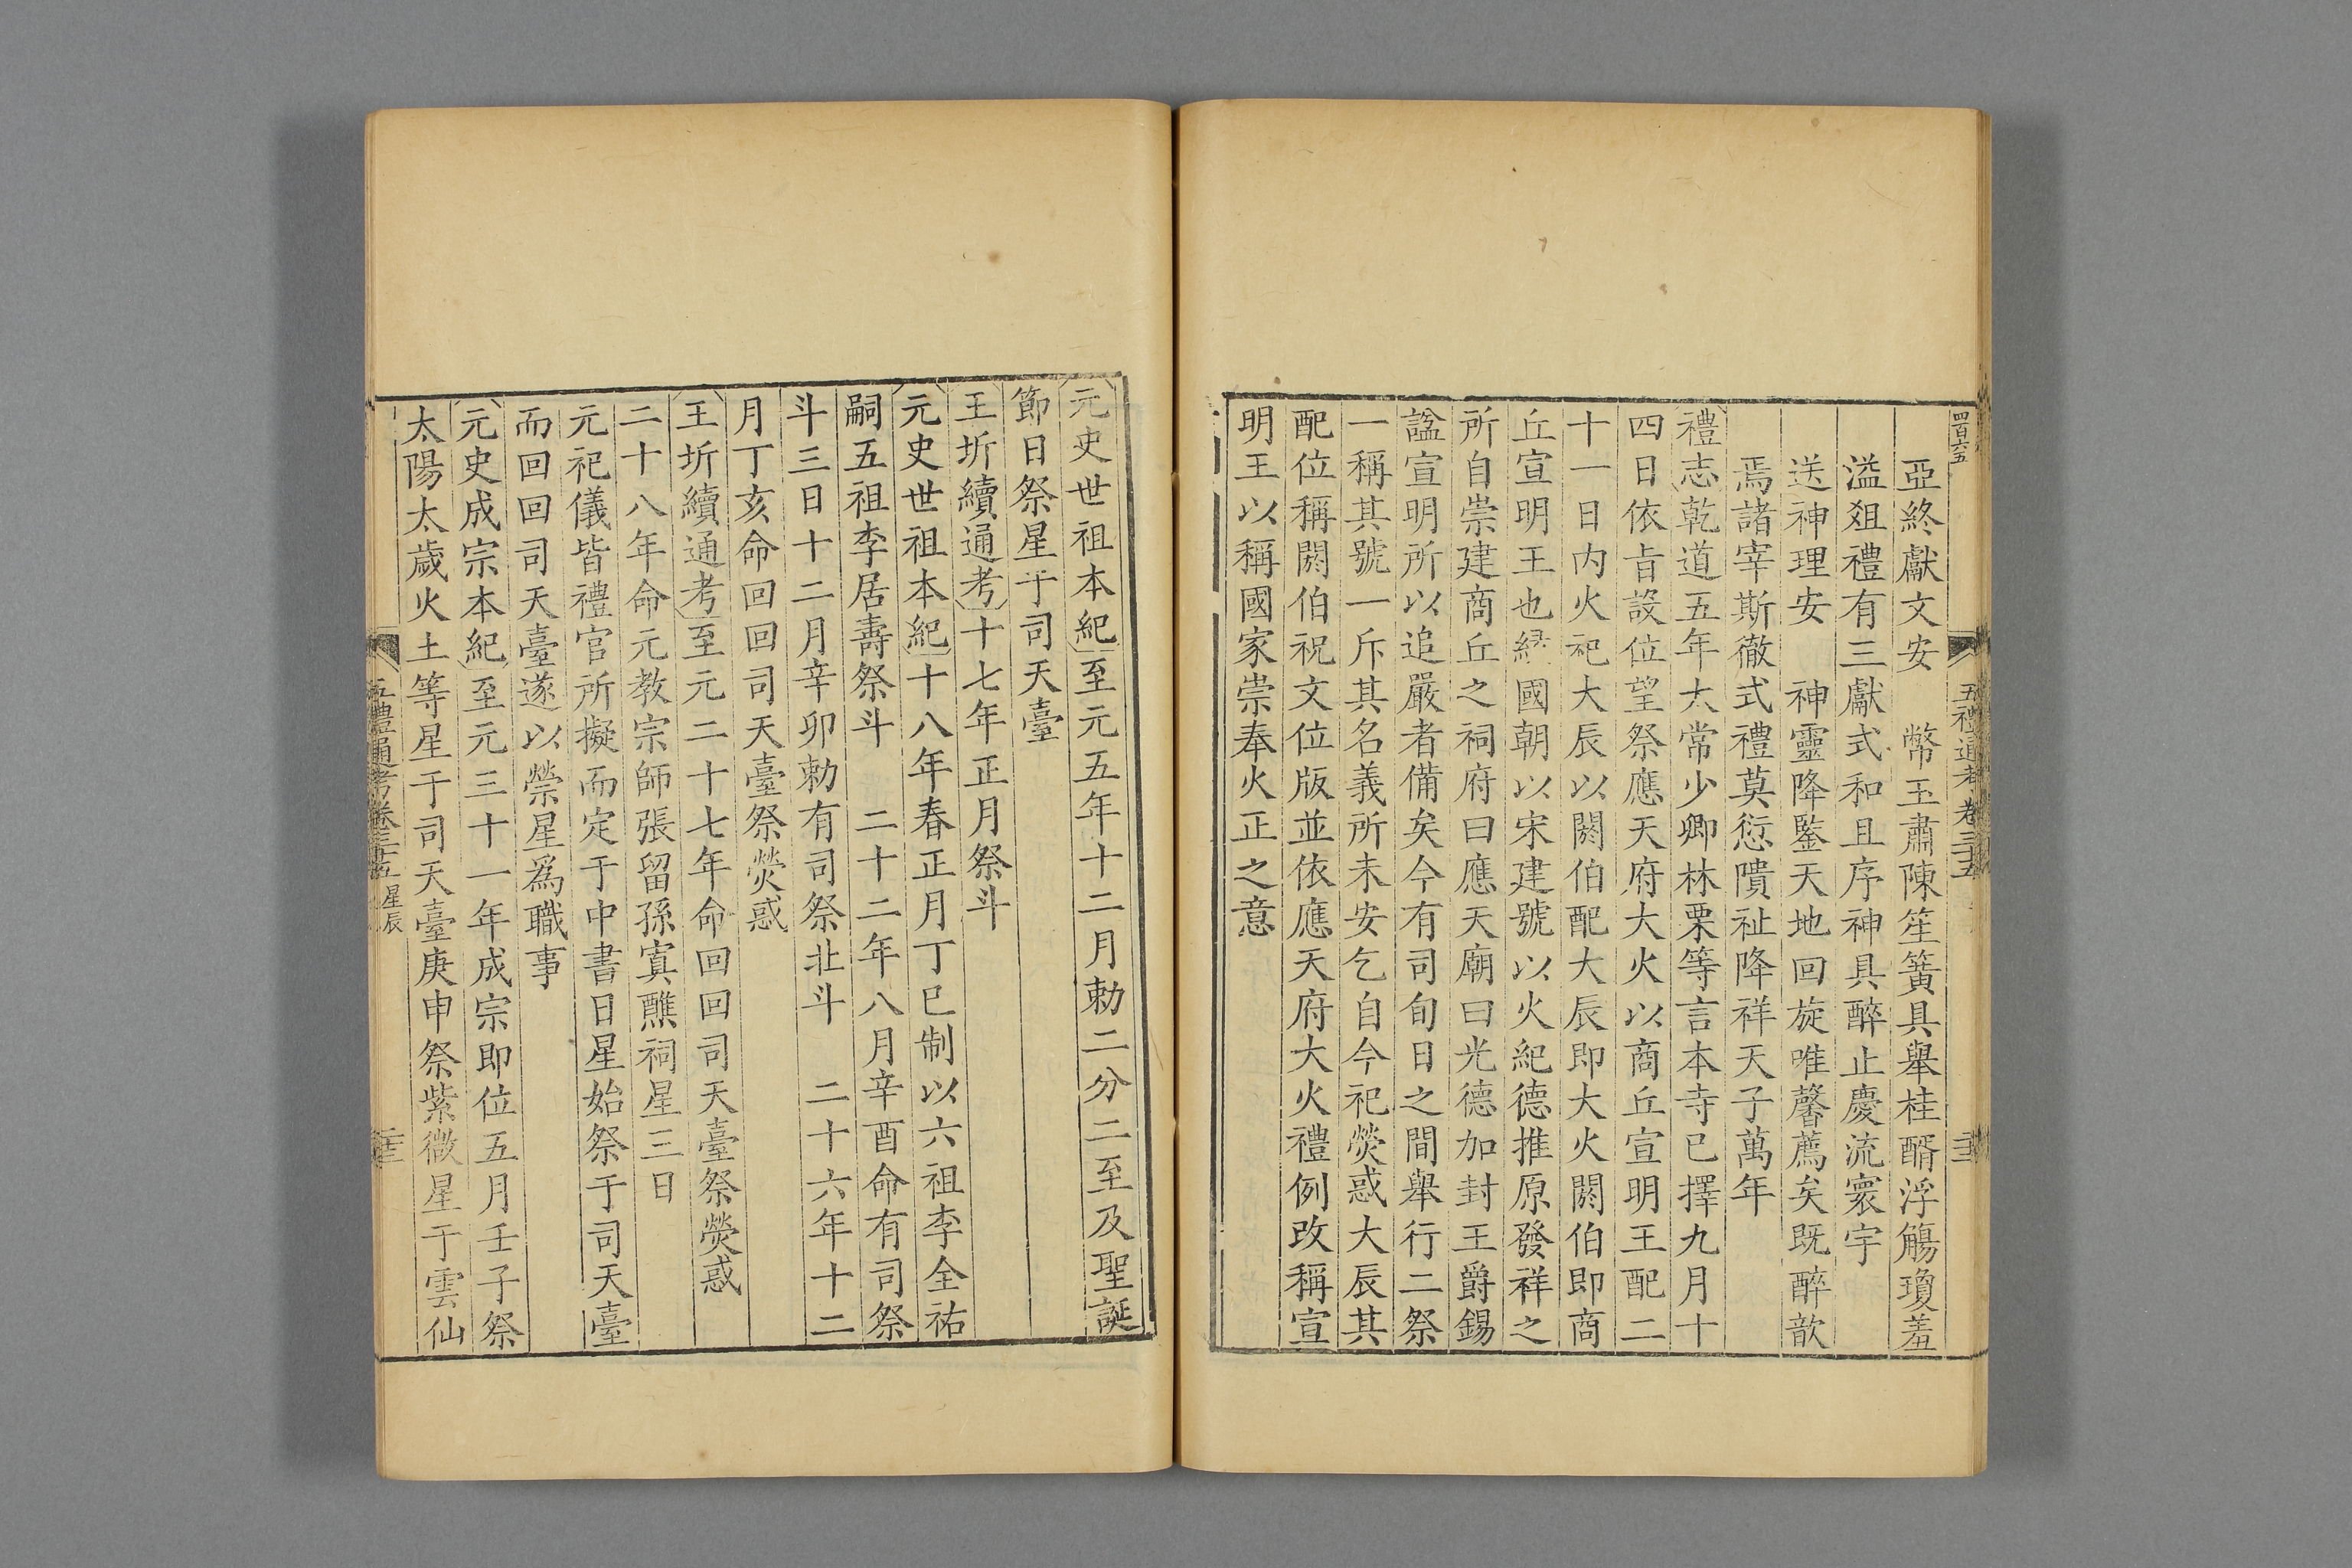 四百六五
五禮通考卷三十五
亞終獻文安　幣玉肅陳笙簧具舉桂醑浮觴瓊羞
溢俎禮有三獻式和且序神具醉止慶流寰宇
送神理安　神靈降鑒天地回旋唯馨薦矣既醉歆
焉諸宰斯徹式禮莫愆隤祉降祥天子萬年
禮志乾道五年太常少卿林栗等言本寺已擇九月十
四日依旨設位望祭應天府大火以商丘宣明王配二
十一日内火祀大辰以閼伯配大辰即大火閼伯即商
丘宣明王也緣國朝以宋建號以火紀德推原發祥之
所自崇建商丘之祠府曰應天廟曰光德加封王爵錫
諡宣明所以追嚴者備矣今有司旬日之間舉行二祭
一稱其號一斥其名義所未安乞自今祀熒惑大辰其
配位稱閼伯祝文位版並依應天府大火禮例改稱宣
明王以稱國家崇奉火正之意
元史世祖本紀至元五年十二月勅二分二至及聖誕
節日祭星于司天臺
王圻續通考十七年正月祭斗
元史世祖本紀十八年春正月丁巳制以六祖李全祐
嗣五祖李居壽祭斗　二十二年八月辛酉命有司祭
斗三日十二月辛卯勅有司祭北斗　二十六年十二
月丁亥命回回司天臺祭熒惑
王圻續通考至元二十七年命回回司天臺祭熒惑
二十八年命元教宗師張留孫寘醮祠星三日
元祀儀皆禮官所擬而定于中書日星始祭于司天臺
而回回司天臺遂以禜星爲職事
元史成宗本紀至元三十一年成宗即位五月壬子祭
太陽太歲火土等星于司天臺庚申祭紫微星于雲仙
五禮通考卷三十五 星辰